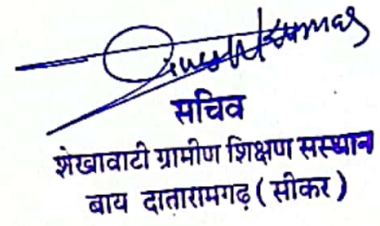 सचिव
शेखावाटी ग्रामीण शिक्षण सस्थान
बाय दातारामगढ़ ( सीकर )